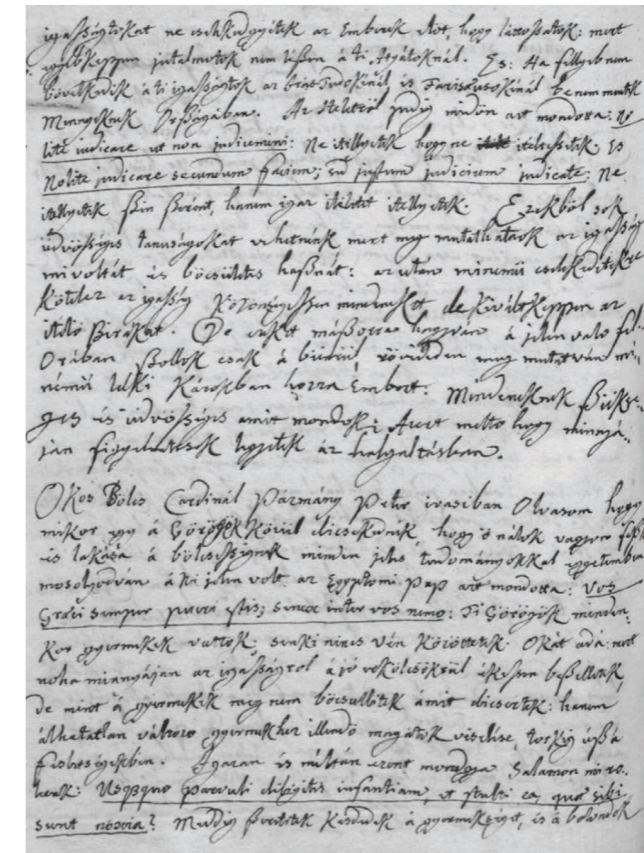 igasságtokat ne cselekedgyétek az Emberek elöt, hogy lássossatok: mert
egyébképpen jutalmatok nem lészen á ti Atyátoknál. Es: Ha fellyebb nem
bövelkedik á ti igasságtok az Irás Tudokénál és Fariseusokénál be nem mentek
Mennyeknek Országában. Az itéletröl pedig mindön azt mondotta: No
lite judicare ut non judicemini: Ne itillyetek hogy ne itéltessetek. Es
Nolite judicare secundum faciem; sed justum judicium judicate: Ne
itillyetek szin szerént, hanem igaz itéletet itillyetek. Ezekböl sok
üdvösséges tanuságokat vehetnénk mert meg mutathatnok az igasság
mivoltát és böcsületes hasznát: az után minemü cselekedetekre
kötelez az igasság közönségessen mindeneket de kiváltképpen az
itélö Birákat. De ezeket másszorra hagyván á jelen való fél
Orában szollok csak á bünrül, rövideden meg mutatván mi
némü lelki károkban hozza Embert. Mindeneknek szüksé-
ges és üdvösséges amit mondok; Azert melto hogy minnyá-
jan figyelmetesek legyetek az halgatásban.
Okos Bölcs Cardinál Pázmány Péter irasiban Olvasom hogy
mikor egy á Görögök közül dicsekednék, hogy ö nálok vagyon
és lakása á bölcsességnek minden jeles tudományokkal egyetemben
mosolyodván á ki jelen volt az Egyptomi Pap azt mondotta: Vos
Græci semper pueri estis; senex inter vos nemo: Ti Görögök minden-
kor gyermekek vattok; senki nincs vén közöttetek. Okát adá: mert
noha minnyájan az igasságrol á jó erkölcsökrül ékesen beszéllettek,
de mint á gyermekek meg nem böcsüllöték ámit dicsertek: hanem
álhatatlan változo gyermekhez illendö magatok viselése
. Azaran és méltán ezent mondgya Salamon
Usquequo parvuli diligitis infantiam, et stulti ea, quæ sibi
sunt noxia? Meddig szeretitek Kisdedek á gyermekséget, és á bolondok